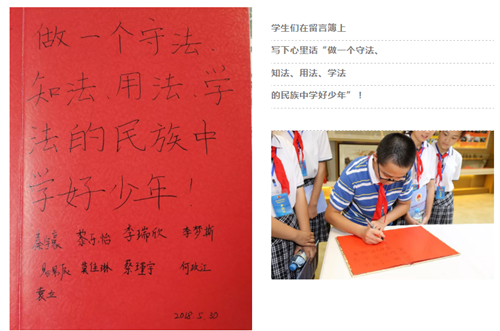 做一个守法、
知法、用法、学
法的民族中
学好少年！
蔡子怡 李瑞欣 李梦斯
莫佳琳 蔡瑾宇
袁立
2018.5.30
学生们在留言簿上
写下心里话“做一个守法、
知法、用法、学法
的民族中学好少年”！